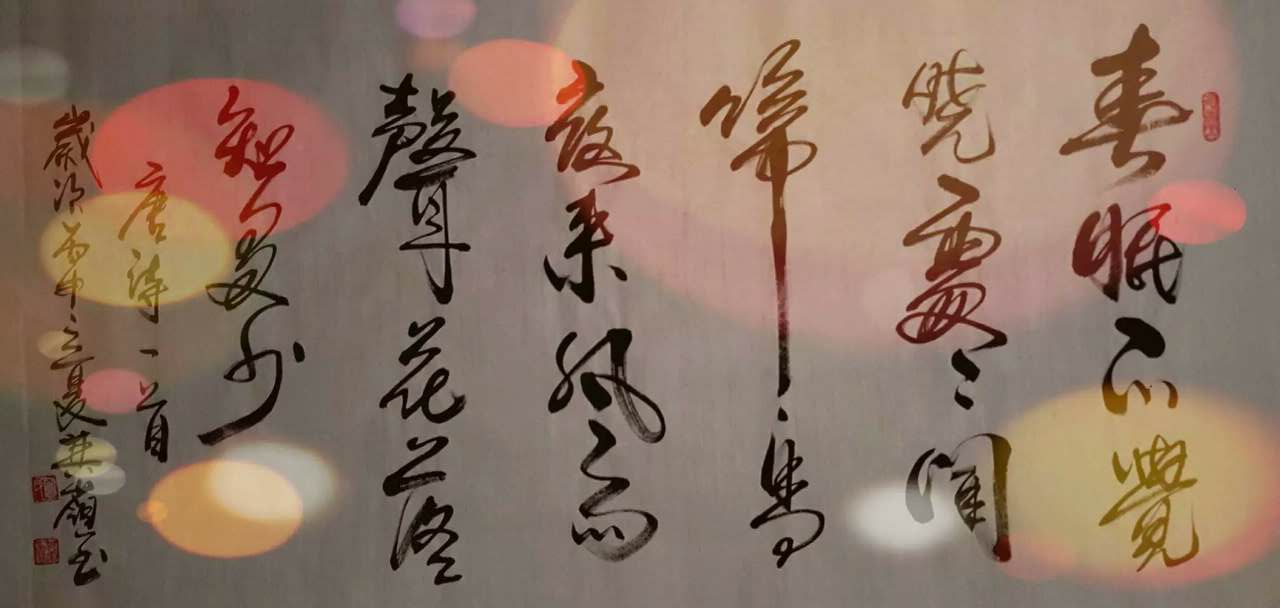 春眠不覺
曉處處聞
啼鳥
夜来風雨
聲花落
知多少
唐詩一首
歲次丙申立夏